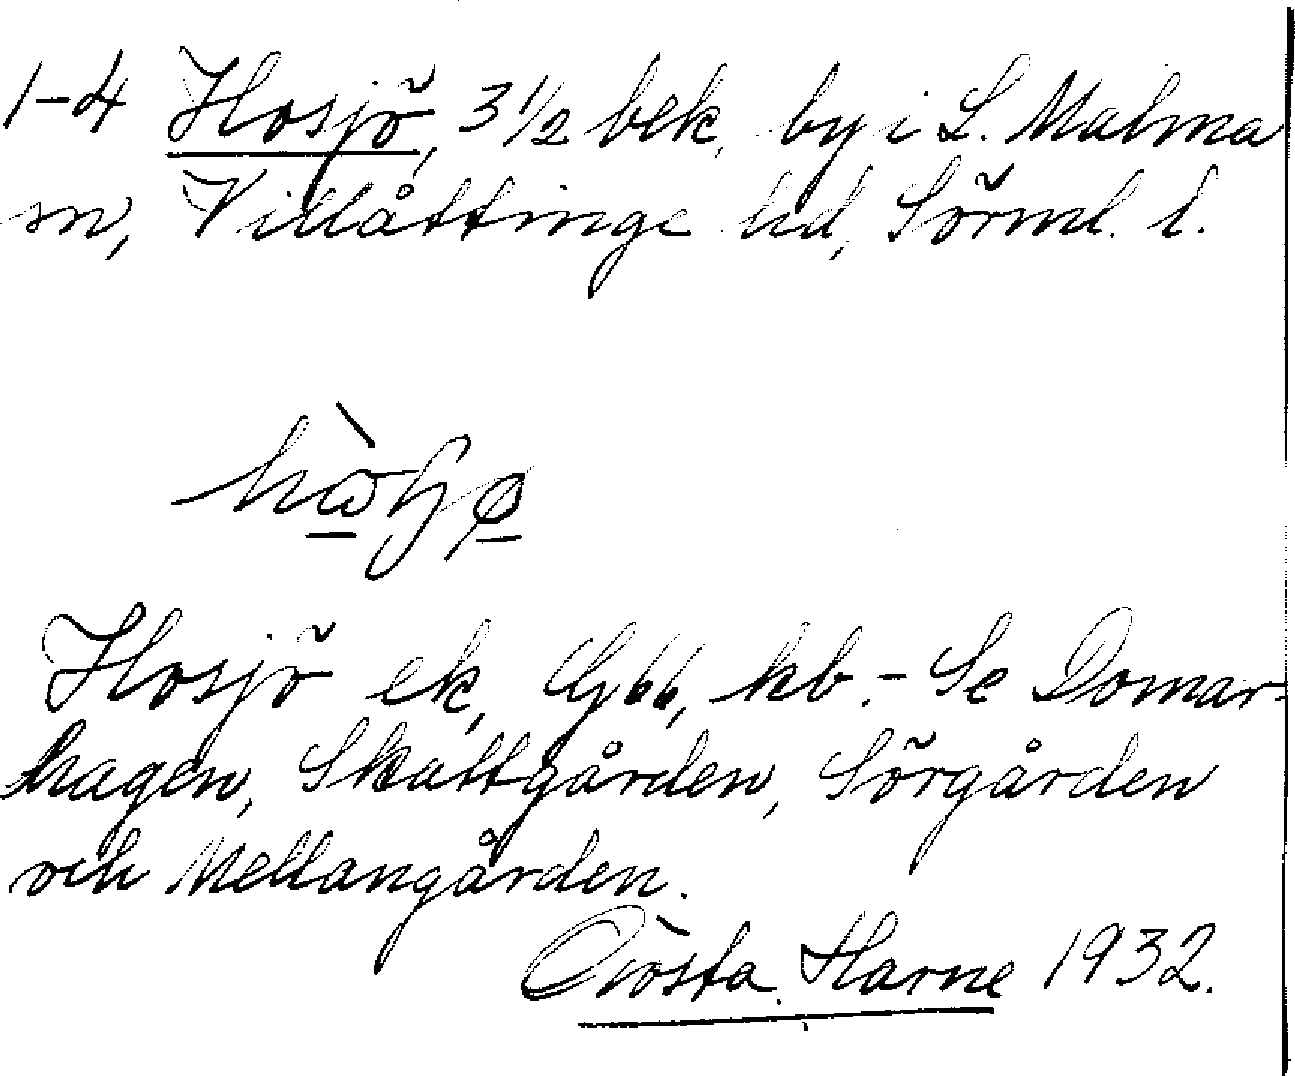 1-4 Hosjö, 3 1/2 bek, by i L. Malma
sn, Villåttinge hd, Sörml. l.
Hosjö ek, G66, kb. - Se Domar-
hagen, Skattgården, Sörgården
och Mellangården.
Gösta Harne 1932.